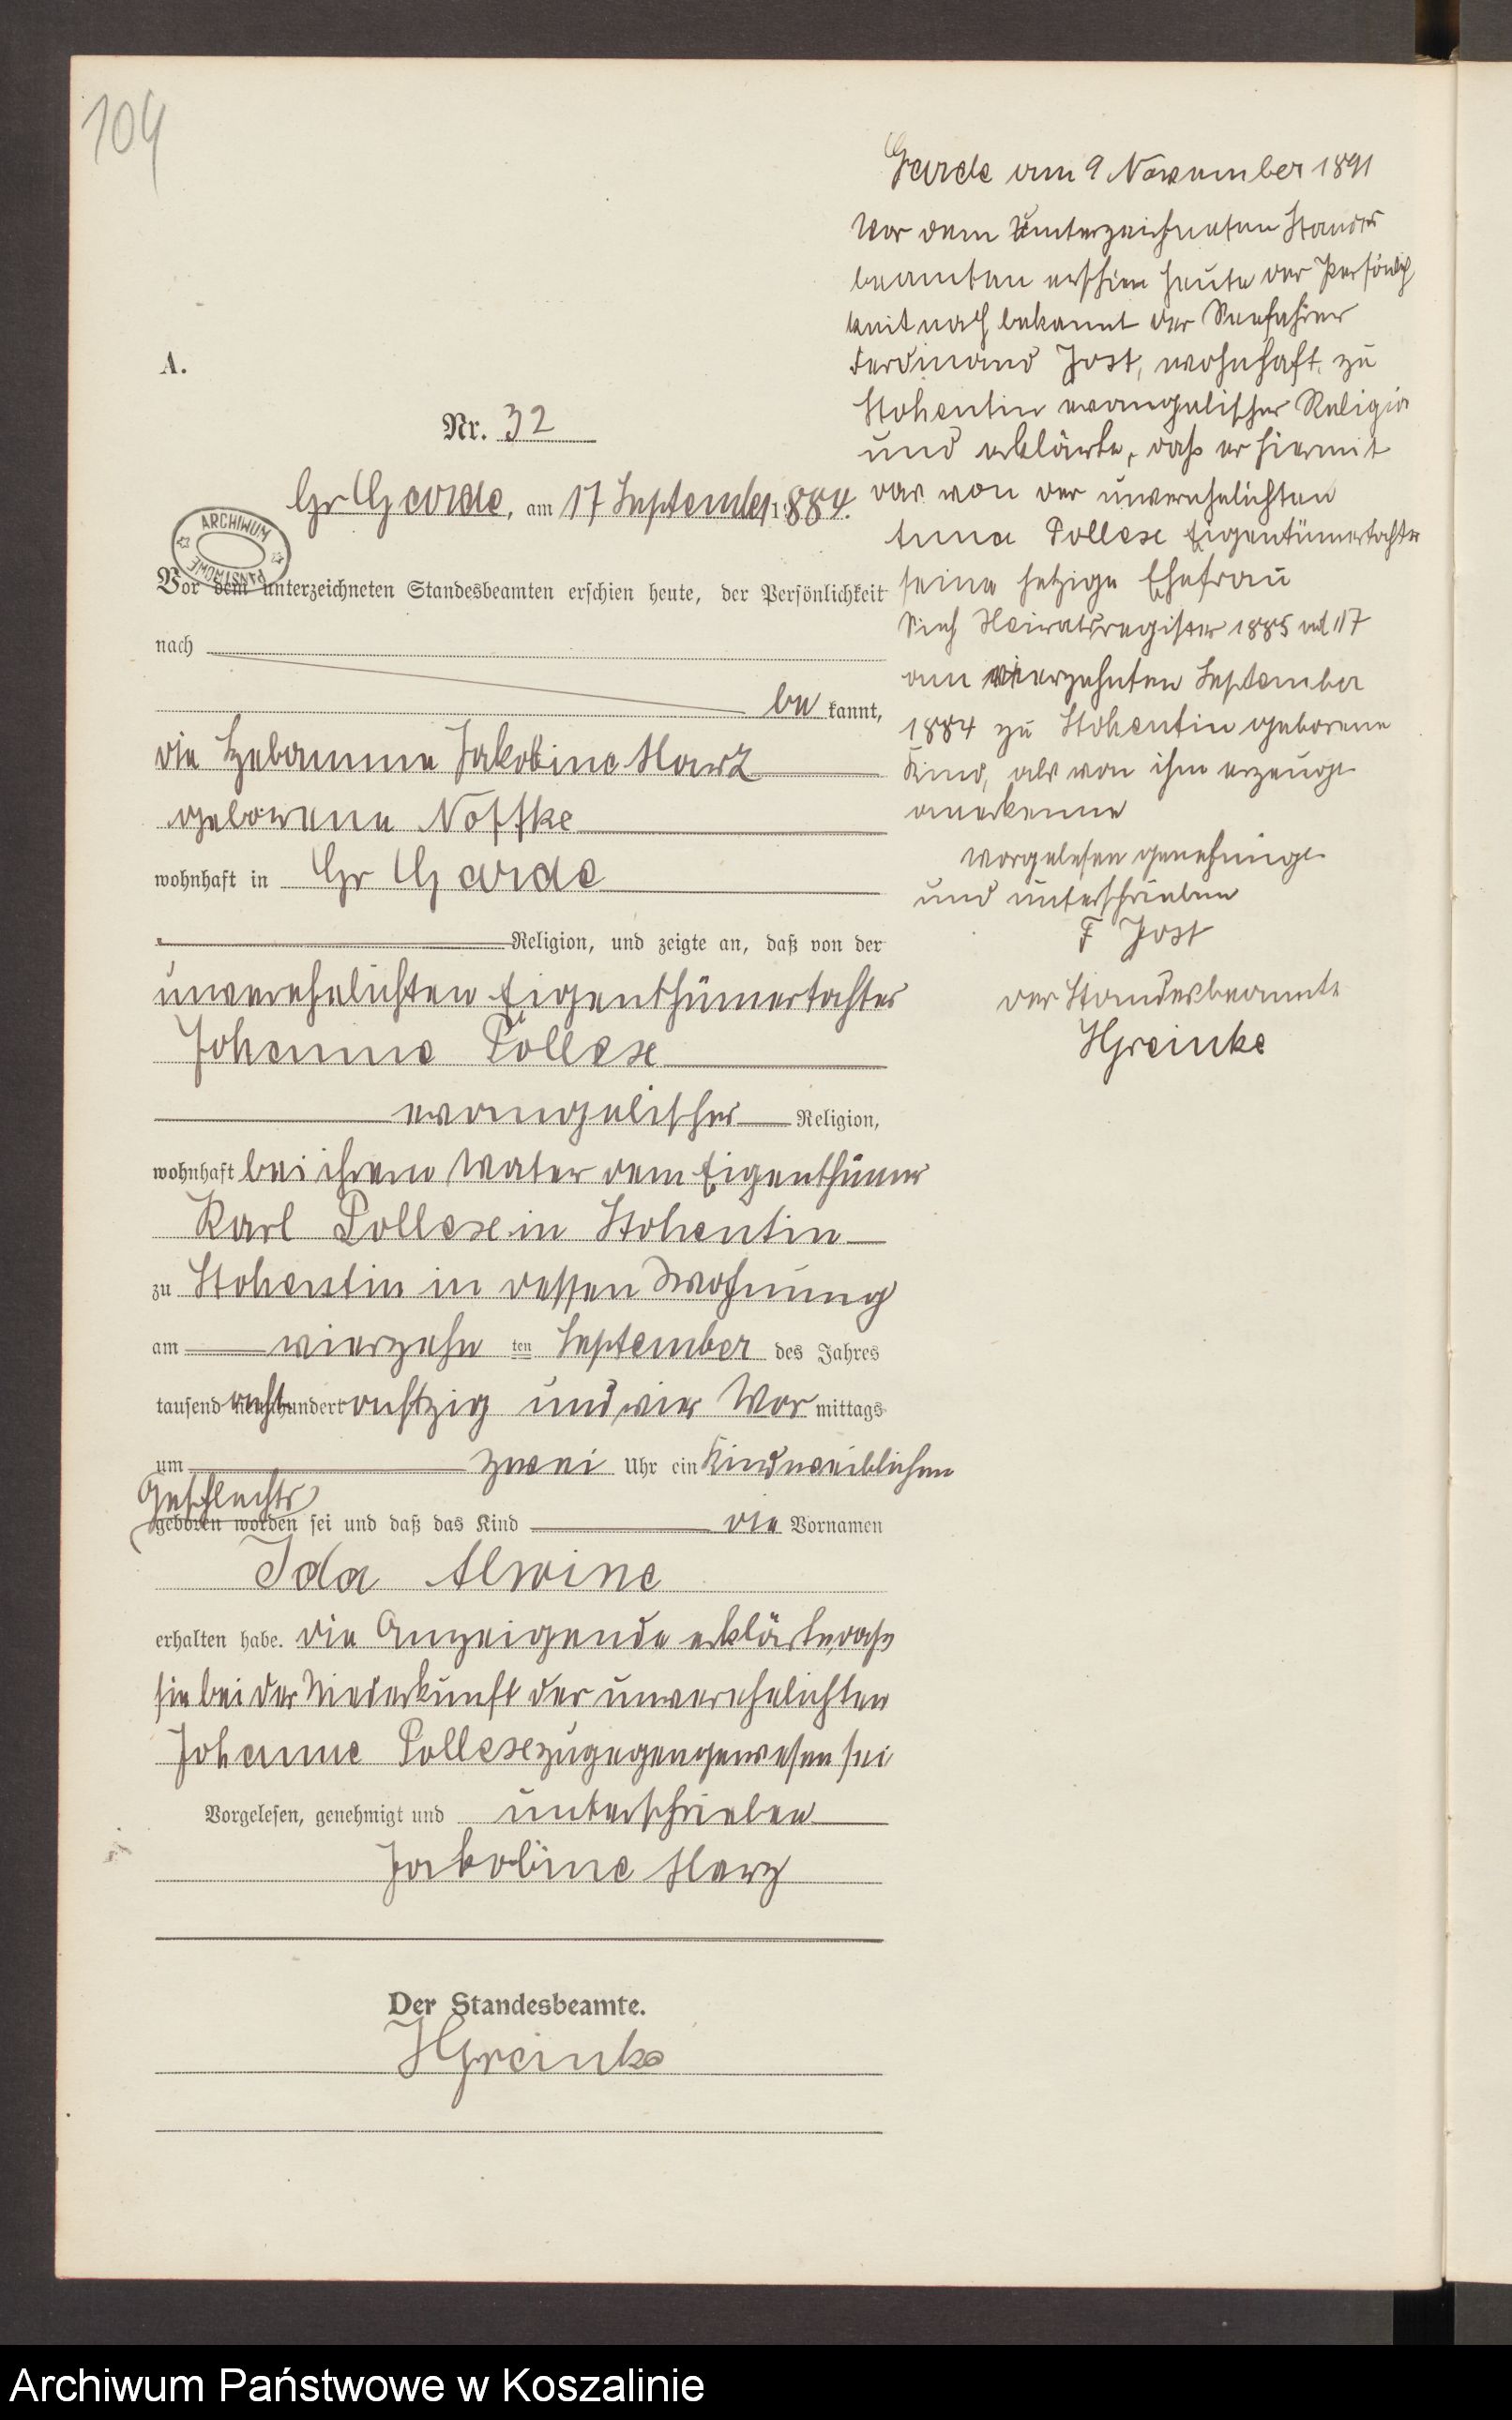 104
A.
Nr. 32
Gr Garde, am 17 September 1884.
ARCHIWUM PAŃSTWOWE
Vor dem unterzeichneten Standesbeamten erschien heute, der Persönlichkeit
nach
be kannt,
die Hebamme Jakobine Harz
geborene Noffke
wohnhaft in Gr Garde
Religion, und zeigte an, daß von der
unverehelichten Eigenthümertochter
Johanne Pollese
evangelischer Religion,
wohnhaft bei ihrem Vater dem Eigenthümer
Karl Pollese in Stohentin
zu Stohentin in dessen Wohnung
am vierzehn ten September des Jahres
tausend acht hundert achtzig und vier Vor mittags
um zwei Uhr ein Kind weiblichen
Geschlechts
geboren worden sei und daß das Kind die Vornamen
Ida Alwine
erhalten habe. die Anzeigende erklärte, daß
sie bei der Niederkunft der unverehelichten
Johanne Pollese zugegen gewesen sei
Vorgelesen, genehmigt und unterschrieben
Jakobine Harz
Der Standesbeamte.
HGreinke
Garde am 9 November 1891
Vor dem Unterzeichneten Standes
beamten erschien heute der Persönlich
keit nach bekannt der Seefahrer
Ferdinand Jost, wohnhaft zu
Stohentin evangelischer Religion
und erklärte, daß er hiermit
das von der unverehelichten
Pollese Eigentümertochter
seine jetzige Ehefrau
Sieh Heiratsregister 1885 17
am vierzehnten September
1884 zu Stohentin geborene
Kind, als von ihm erzeugt
anerkenne
vorgelesen genehmigt
und unterschrieben
F Jost
der Standesbeamte
HGreinke
Archiwum Państwowe w Koszalinie